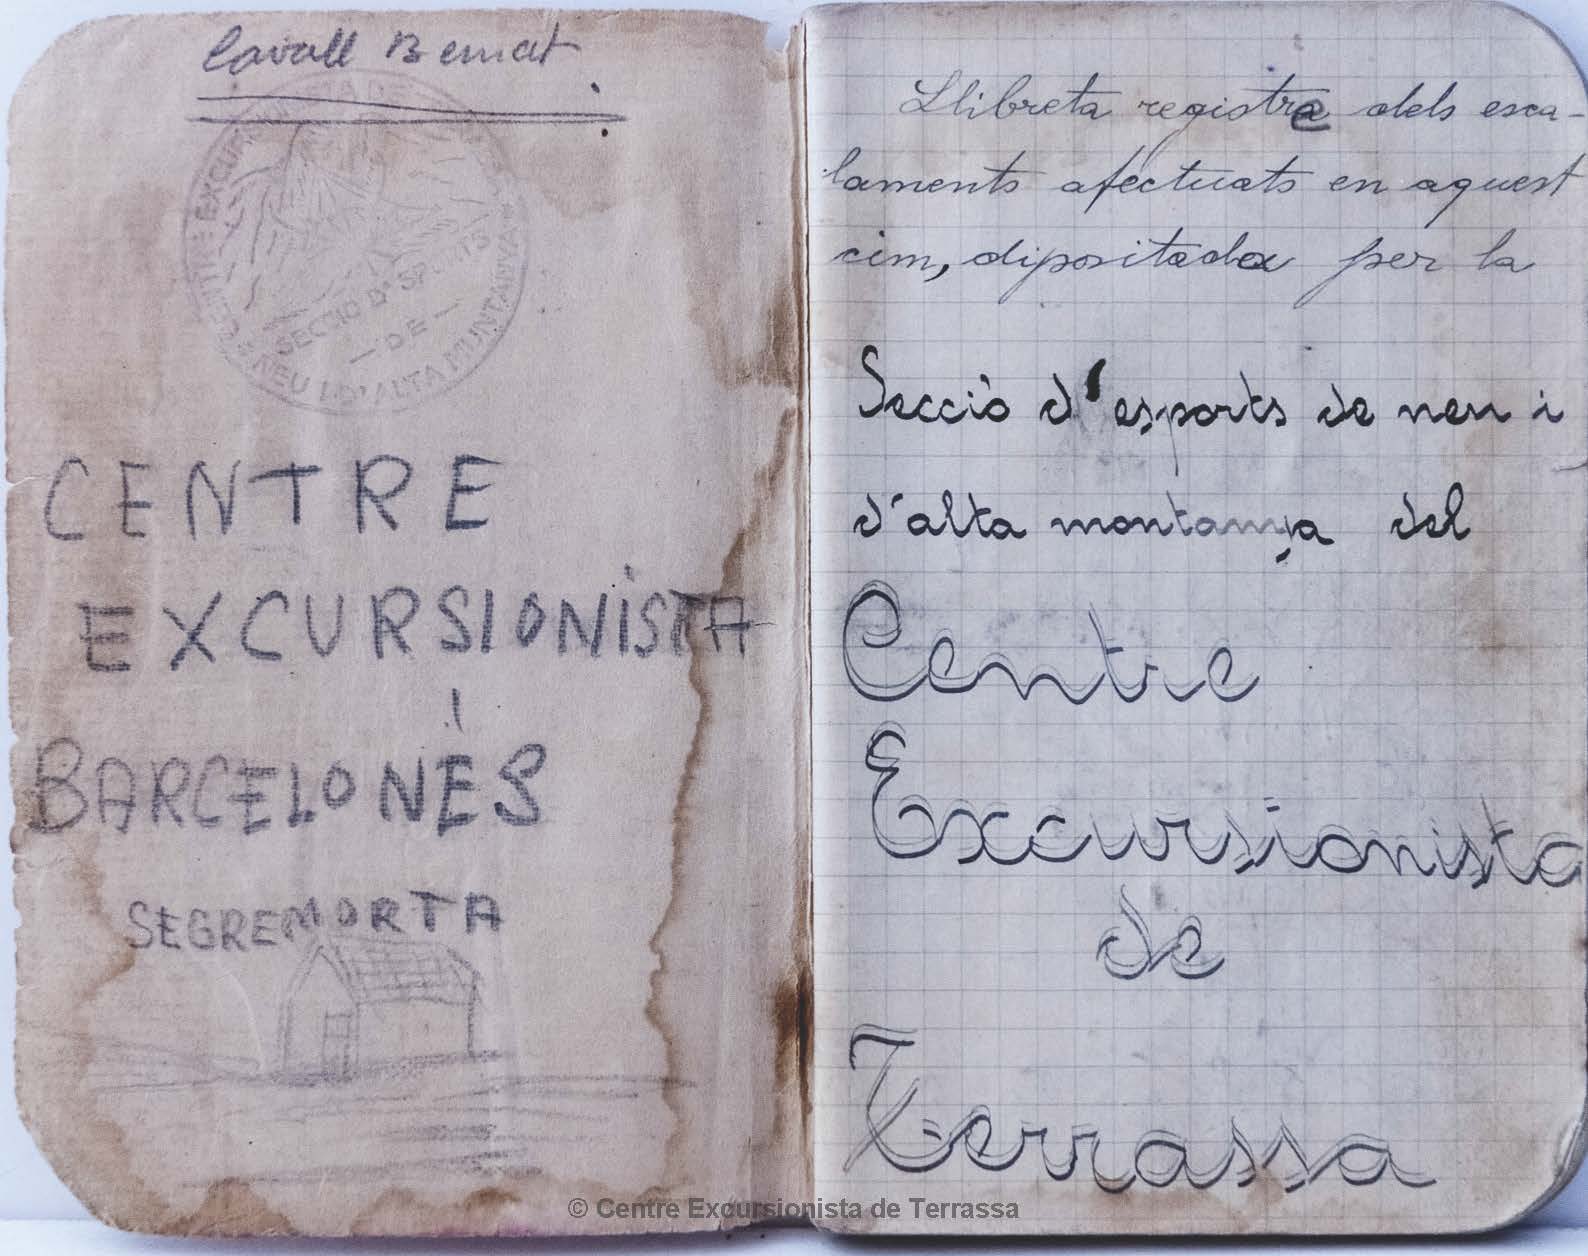 Cavall Bernat
CENTRE EXCURSIONISTA DE
SECCIO D'ESPORTS
— DE —
NEU I D'ALTA MUNTANYA
CENTRE
EXCURSIONISTA
BARCELONÈS
SEGREMORTA
Llibreta registre dels esca-
laments afectuats en aquest
cim, dipositada per la
Secció d'esports de neu i
d'alta montanya del
Centre
Excursionista
de
Terrassa
© Centre Excursionista de Terrassa